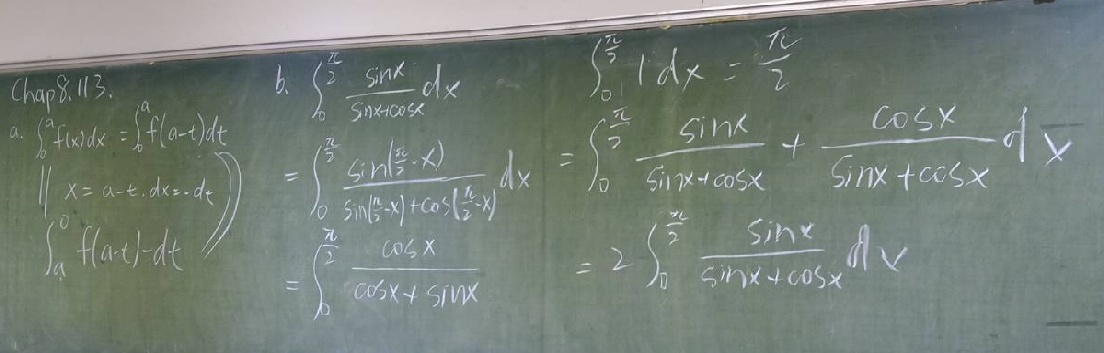 Chap8.113.
a. ∫₀ᵃ f(x)dx = ∫₀ᵃ f(a-t)dt
|| x = a-t. dx = -dt
∫ₐ⁰ f(a-t)-dt
b. ∫₀^(π/2) sinx/(sinx+cosx) dx
= ∫₀^(π/2) sin(π/2-x)/(sin(π/2-x)+cos(π/2-x)) dx
= ∫₀^(π/2) cosx/(cosx+sinx)
∫₀^(π/2) 1dx = π/2
= ∫₀^(π/2) sinx/(sinx+cosx) + cosx/(sinx+cosx) dx
= 2∫₀^(π/2) sinx/(sinx+cosx) dx